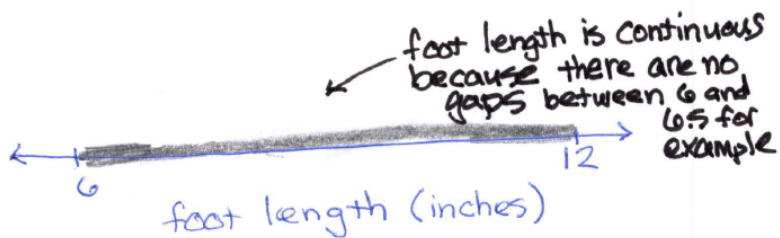 foot length is continuous
because there are no
gaps between 6 and
6.5 for
example
6
12
foot length (inches)